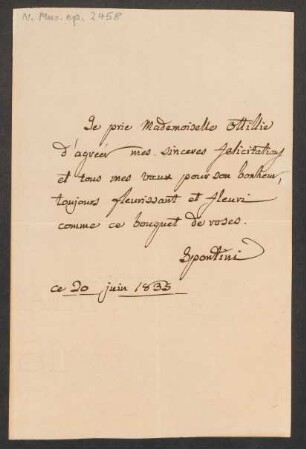 N. Mus. ep. 2458
Je prie Mademoiselle Ottilie
d'agréer mes sinceres felicitations
et tous mes vœux pour son bonheur,
toujours fleurissant et fleuri
comme ce bouquet de roses.
Spontini
ce 20 juin 1835